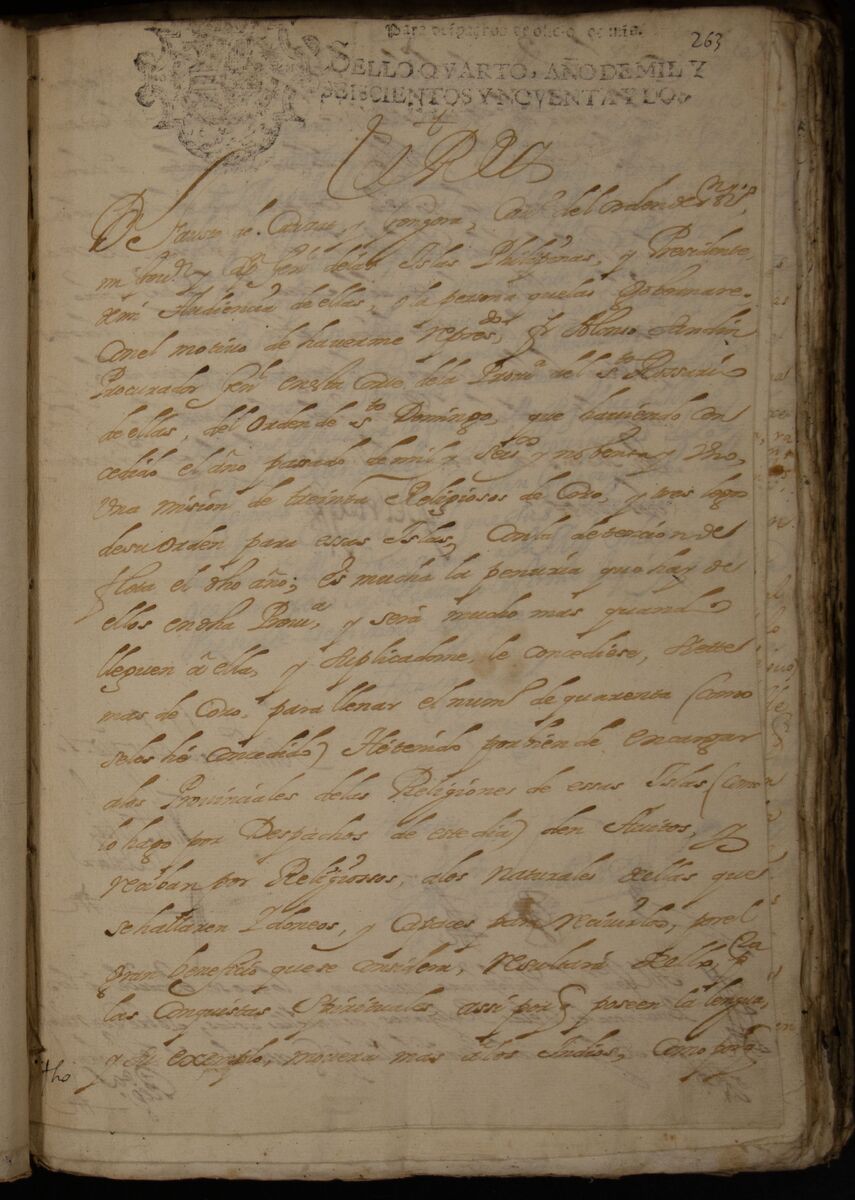 Para despachos de oficio, de mrs.
263
SELLO QVARTO, AÑO DE MIL Y
SEISCIENTOS Y NOVENTA Y DOS
El Rey
Dn Fausto de Cruzat y Gongora, Cavo. del orden de
mi Govr. y Capn Genl delas Islas Philipinas, y Presidente
demi Audiencia de ellas, o la persona que las Governare.
Conel motivo de haverme represdo, fr Alonso Sandin
Procurador Genl enesta Corte dela Prova del Sto Rosario
de ellas, del orden de Sto Domingo, que haviendo con
cedido el año pasado demil y Seisco y nobenta y Uno,
Una mision de treinta Religiosos de Coro, y tres legos
desu orden para essas Islas, Conla detencion de
flota el dho año; Es mucha la penuria que hay de
ellos endha Prova, y será mucho mas quando
lleguen à ella, y Suplicadome, le concediese, Siette
mas de Coro, para llenar el numo de quarenta (como
seles hé concedido) Hé tenido por bien de encargar
alos Provinciales delas Religiones de essas Islas (como
lo hago por Despachos de este dia) den Avitos, y
recivan por Religiosos, alos naturales dellas que
se hallaren Ydoneos, y Capaces para recivirlos, por el
gran beneficio que se considera, resultará dello, pa
las Conquistas Spirituales, assi porq poseen la lengua,
y su exemplo, moverá mas alos Indios, como porq
tho